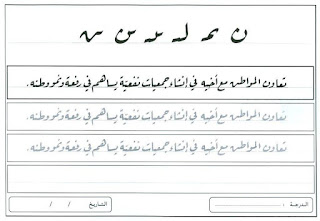 تعاون المواطن مع أخيه في إنشاء جمعيات نفعيّة يساهم في رفعة ونمو وطنه.
تعاون المواطن مع أخيه في إنشاء جمعيات نفعيّة يساهم في رفعة ونمو وطنه.
تعاون المواطن مع أخيه في إنشاء جمعيات نفعيّة يساهم في رفعة ونمو وطنه.
الدرجة : التاريخ / /